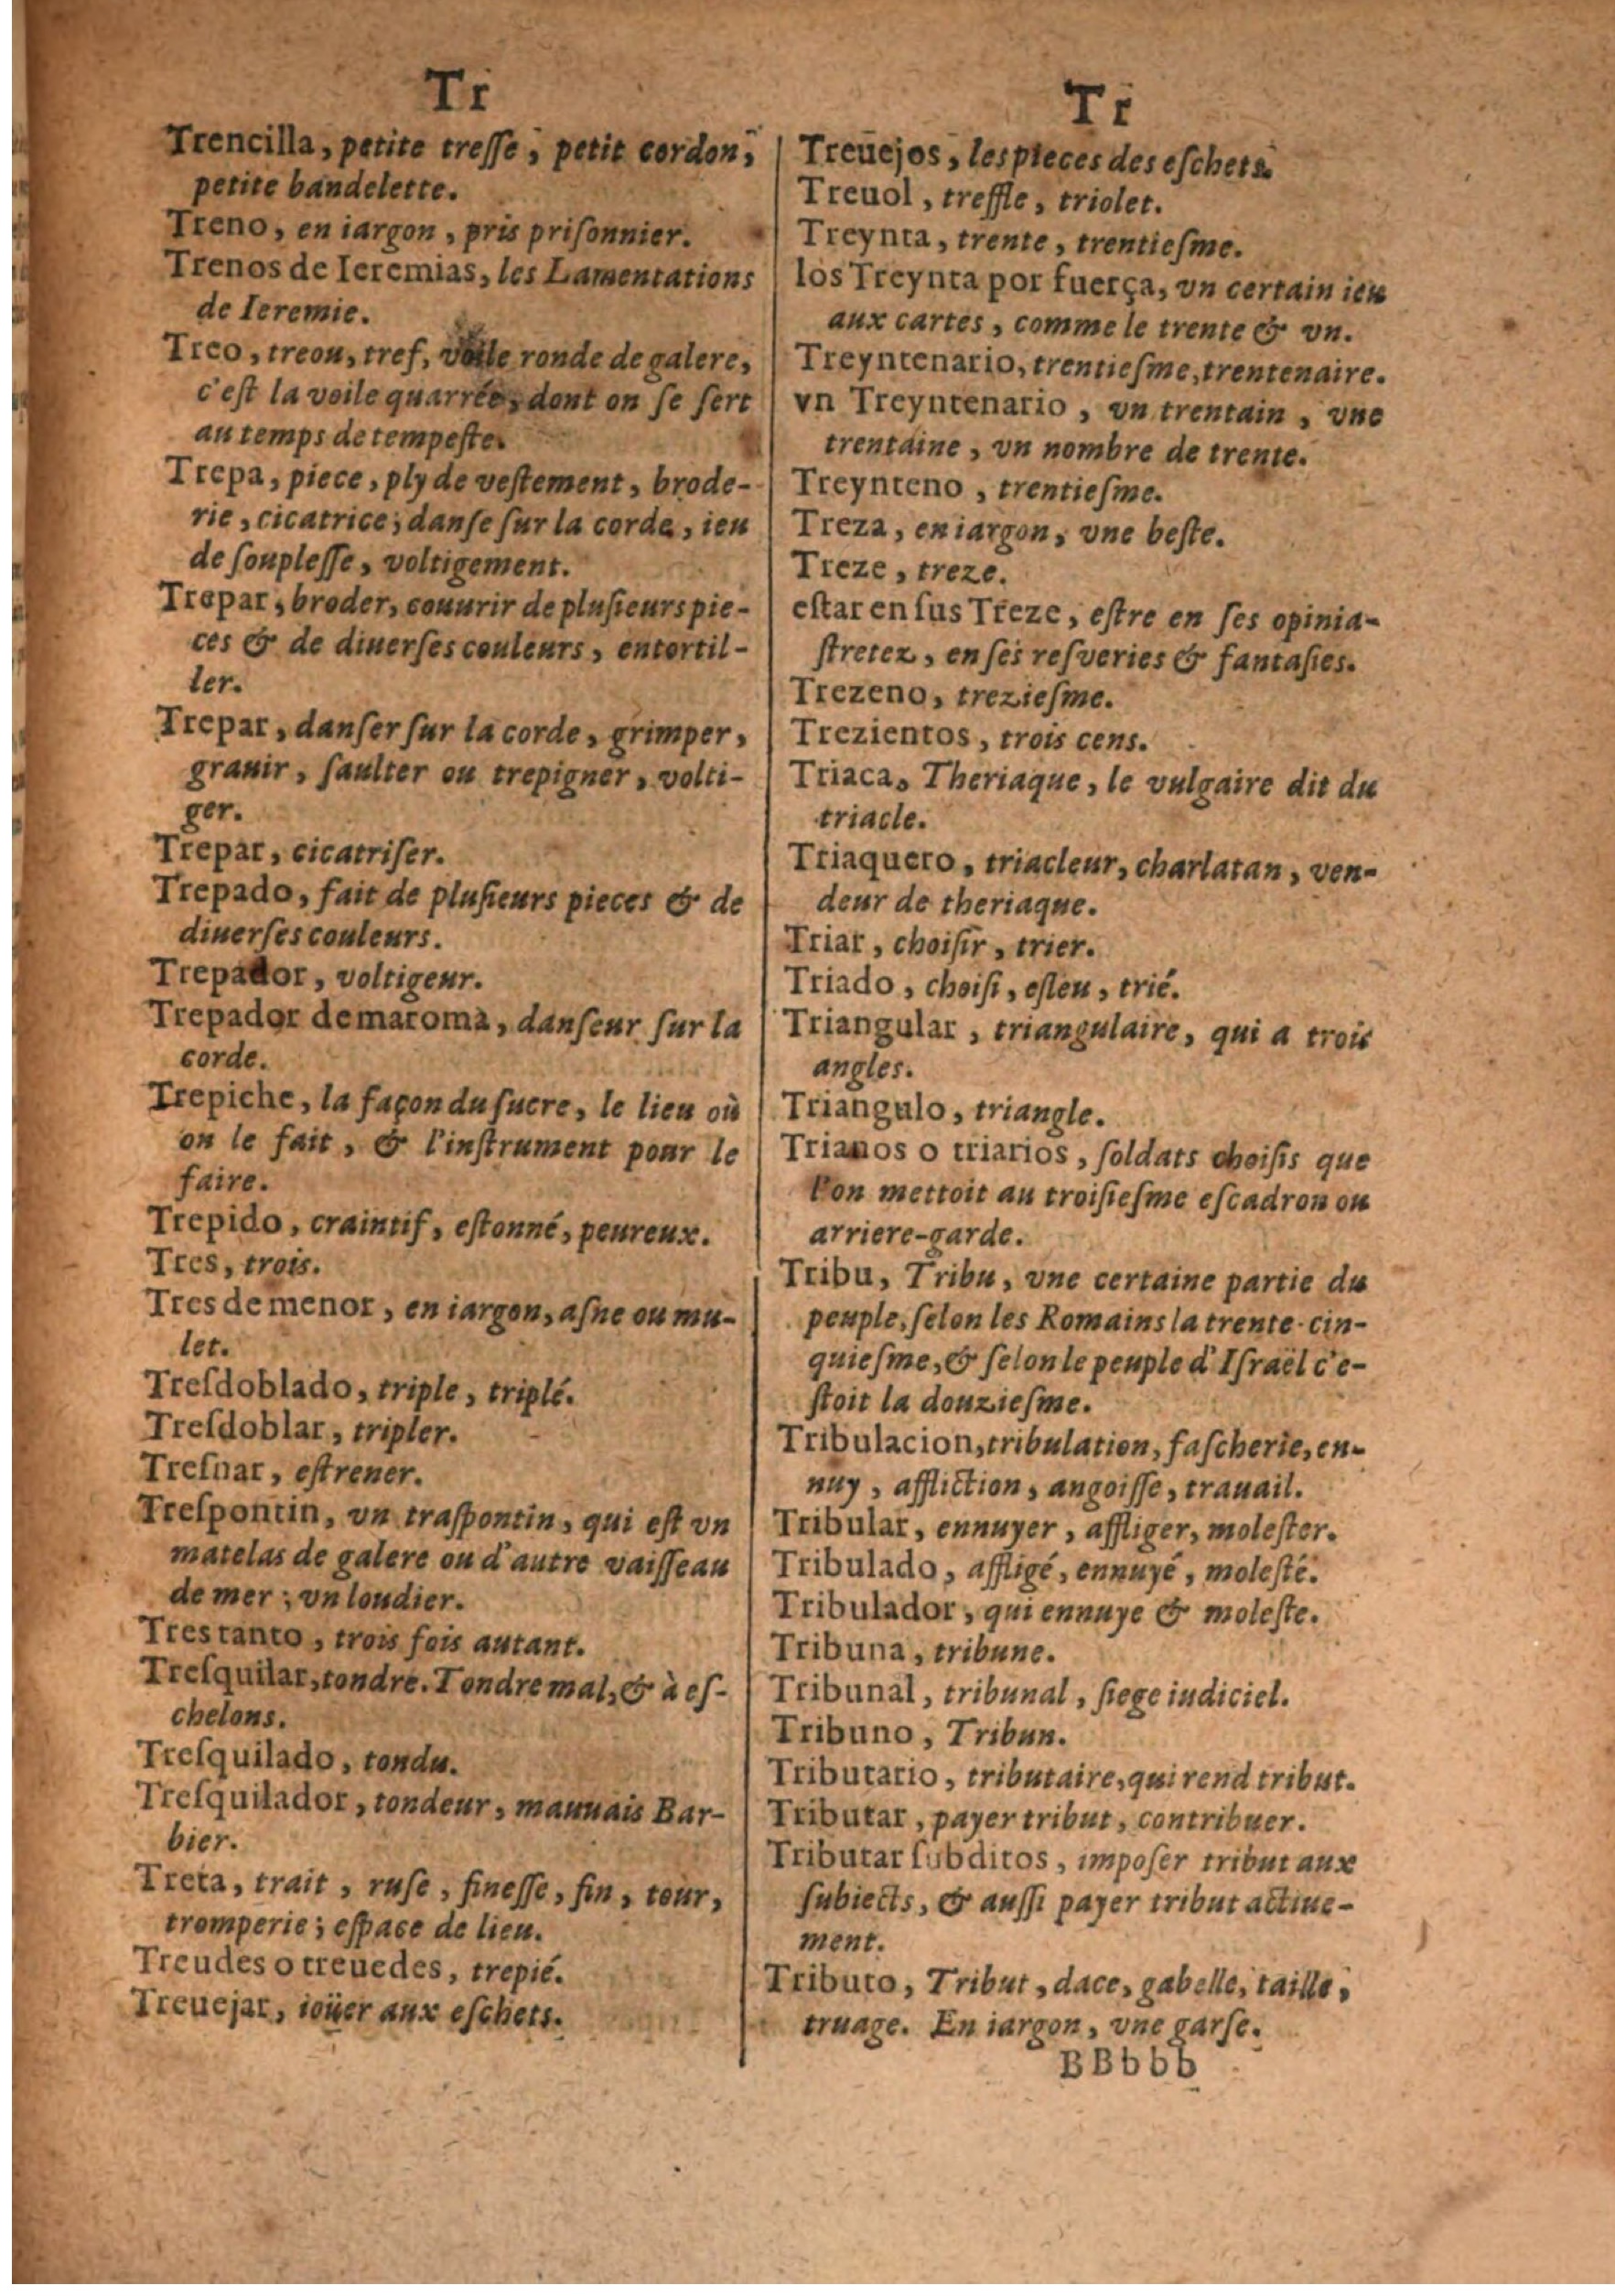 Tr
Trencilla, petite treſſe, petit cordon,
petite bandelette.
Treno, en iargon, pris priſonnier.
Trenos de Ieremias, les Lamentations
de Ieremie.
Treo, treou, tref, voile ronde de galere,
c'eſt la voile quarrée, dont on ſe ſert
au temps de tempeſte.
Trepa, piece, ply de veſtement, brode-
rie, cicatrice; danſe ſur la corde, ieu
de ſoupleſſe, voltigement.
Trepar, broder, couurir de pluſieurs pie-
ces & de diuerſes couleurs, entortil-
ler.
Trepar, danſer ſur la corde, grimper,
grauir, ſaulter ou trepigner, volti-
ger.
Trepar, cicatriſer.
Trepado, fait de pluſieurs pieces & de
diuerſes couleurs.
Trepador, voltigeur.
Trepador de maroma, danſeur ſur la
corde.
Trepiche, la façon du ſucre, le lieu où
on le fait, & l'inſtrument pour le
faire.
Trepido, craintif, eſtonné, peureux.
Tres, trois.
Tres de menor, en iargon, aſne ou mu-
let.
Treſdoblado, triple, triplé.
Treſdoblar, tripler.
Treſnar, eſtrener.
Treſpontin, vn traſpontin, qui eſt vn
matelas de galere ou d'autre vaiſſeau
de mer; vn loudier.
Tres tanto, trois fois autant.
Treſquilar, tondre. Tondre mal, & à eſ-
chelons.
Treſquilado, tondu.
Treſquilador, tondeur, mauuais Bar-
bier.
Treta, trait, ruſe, fineſſe, fin, tour,
tromperie; eſpace de lieu.
Treudes o treuedes, trepié.
Treuejar, ioüer aux eſchets.
Tr
Treuejos, les pieces des eſchets.
Treuol, treffle, triolet.
Treynta, trente, trentieſme.
los Treynta por fuerça, vn certain ieu
aux cartes, comme le trente & vn.
Treyntenario, trentieſme, trentenaire.
vn Treyntenario, vn trentain, vne
trentaine, vn nombre de trente.
Treynteno, trentieſme.
Treza, en iargon, vne beſte.
Treze, treze.
eſtar en ſus Treze, eſtre en ſes opinia-
ſtretez, en ſes reſveries & fantaſies.
Trezeno, trezieſme.
Trezientos, trois cens.
Triaca, Theriaque, le vulgaire dit du
triacle.
Triaquero, triacleur, charlatan, ven-
deur de theriaque.
Triar, choiſir, trier.
Triado, choiſi, eſleu, trié.
Triangular, triangulaire, qui a trois
angles.
Triangulo, triangle.
Trianos o triarios, ſoldats choiſis que
l'on mettoit au troiſieſme eſcadron ou
arriere-garde.
Tribu, Tribu, vne certaine partie du
peuple, ſelon les Romains la trente-cin-
quieſme, & ſelon le peuple d'Iſraël c'e-
ſtoit la douzieſme.
Tribulacion, tribulation, faſcherie, en-
nuy, affliction, angoiſſe, trauail.
Tribular, ennuyer, affliger, moleſter.
Tribulado, affligé, ennuyé, moleſté.
Tribulador, qui ennuye & moleſte.
Tribuna, tribune.
Tribunal, tribunal, ſiege iudiciel.
Tribuno, Tribun.
Tributario, tributaire, qui rend tribut.
Tributar, payer tribut, contribuer.
Tributar ſubditos, impoſer tribut aux
ſubiects, & auſſi payer tribut actiue-
ment.
Tributo, Tribut, dace, gabelle, taille,
truage. En iargon, vne garſe.
BBbbb